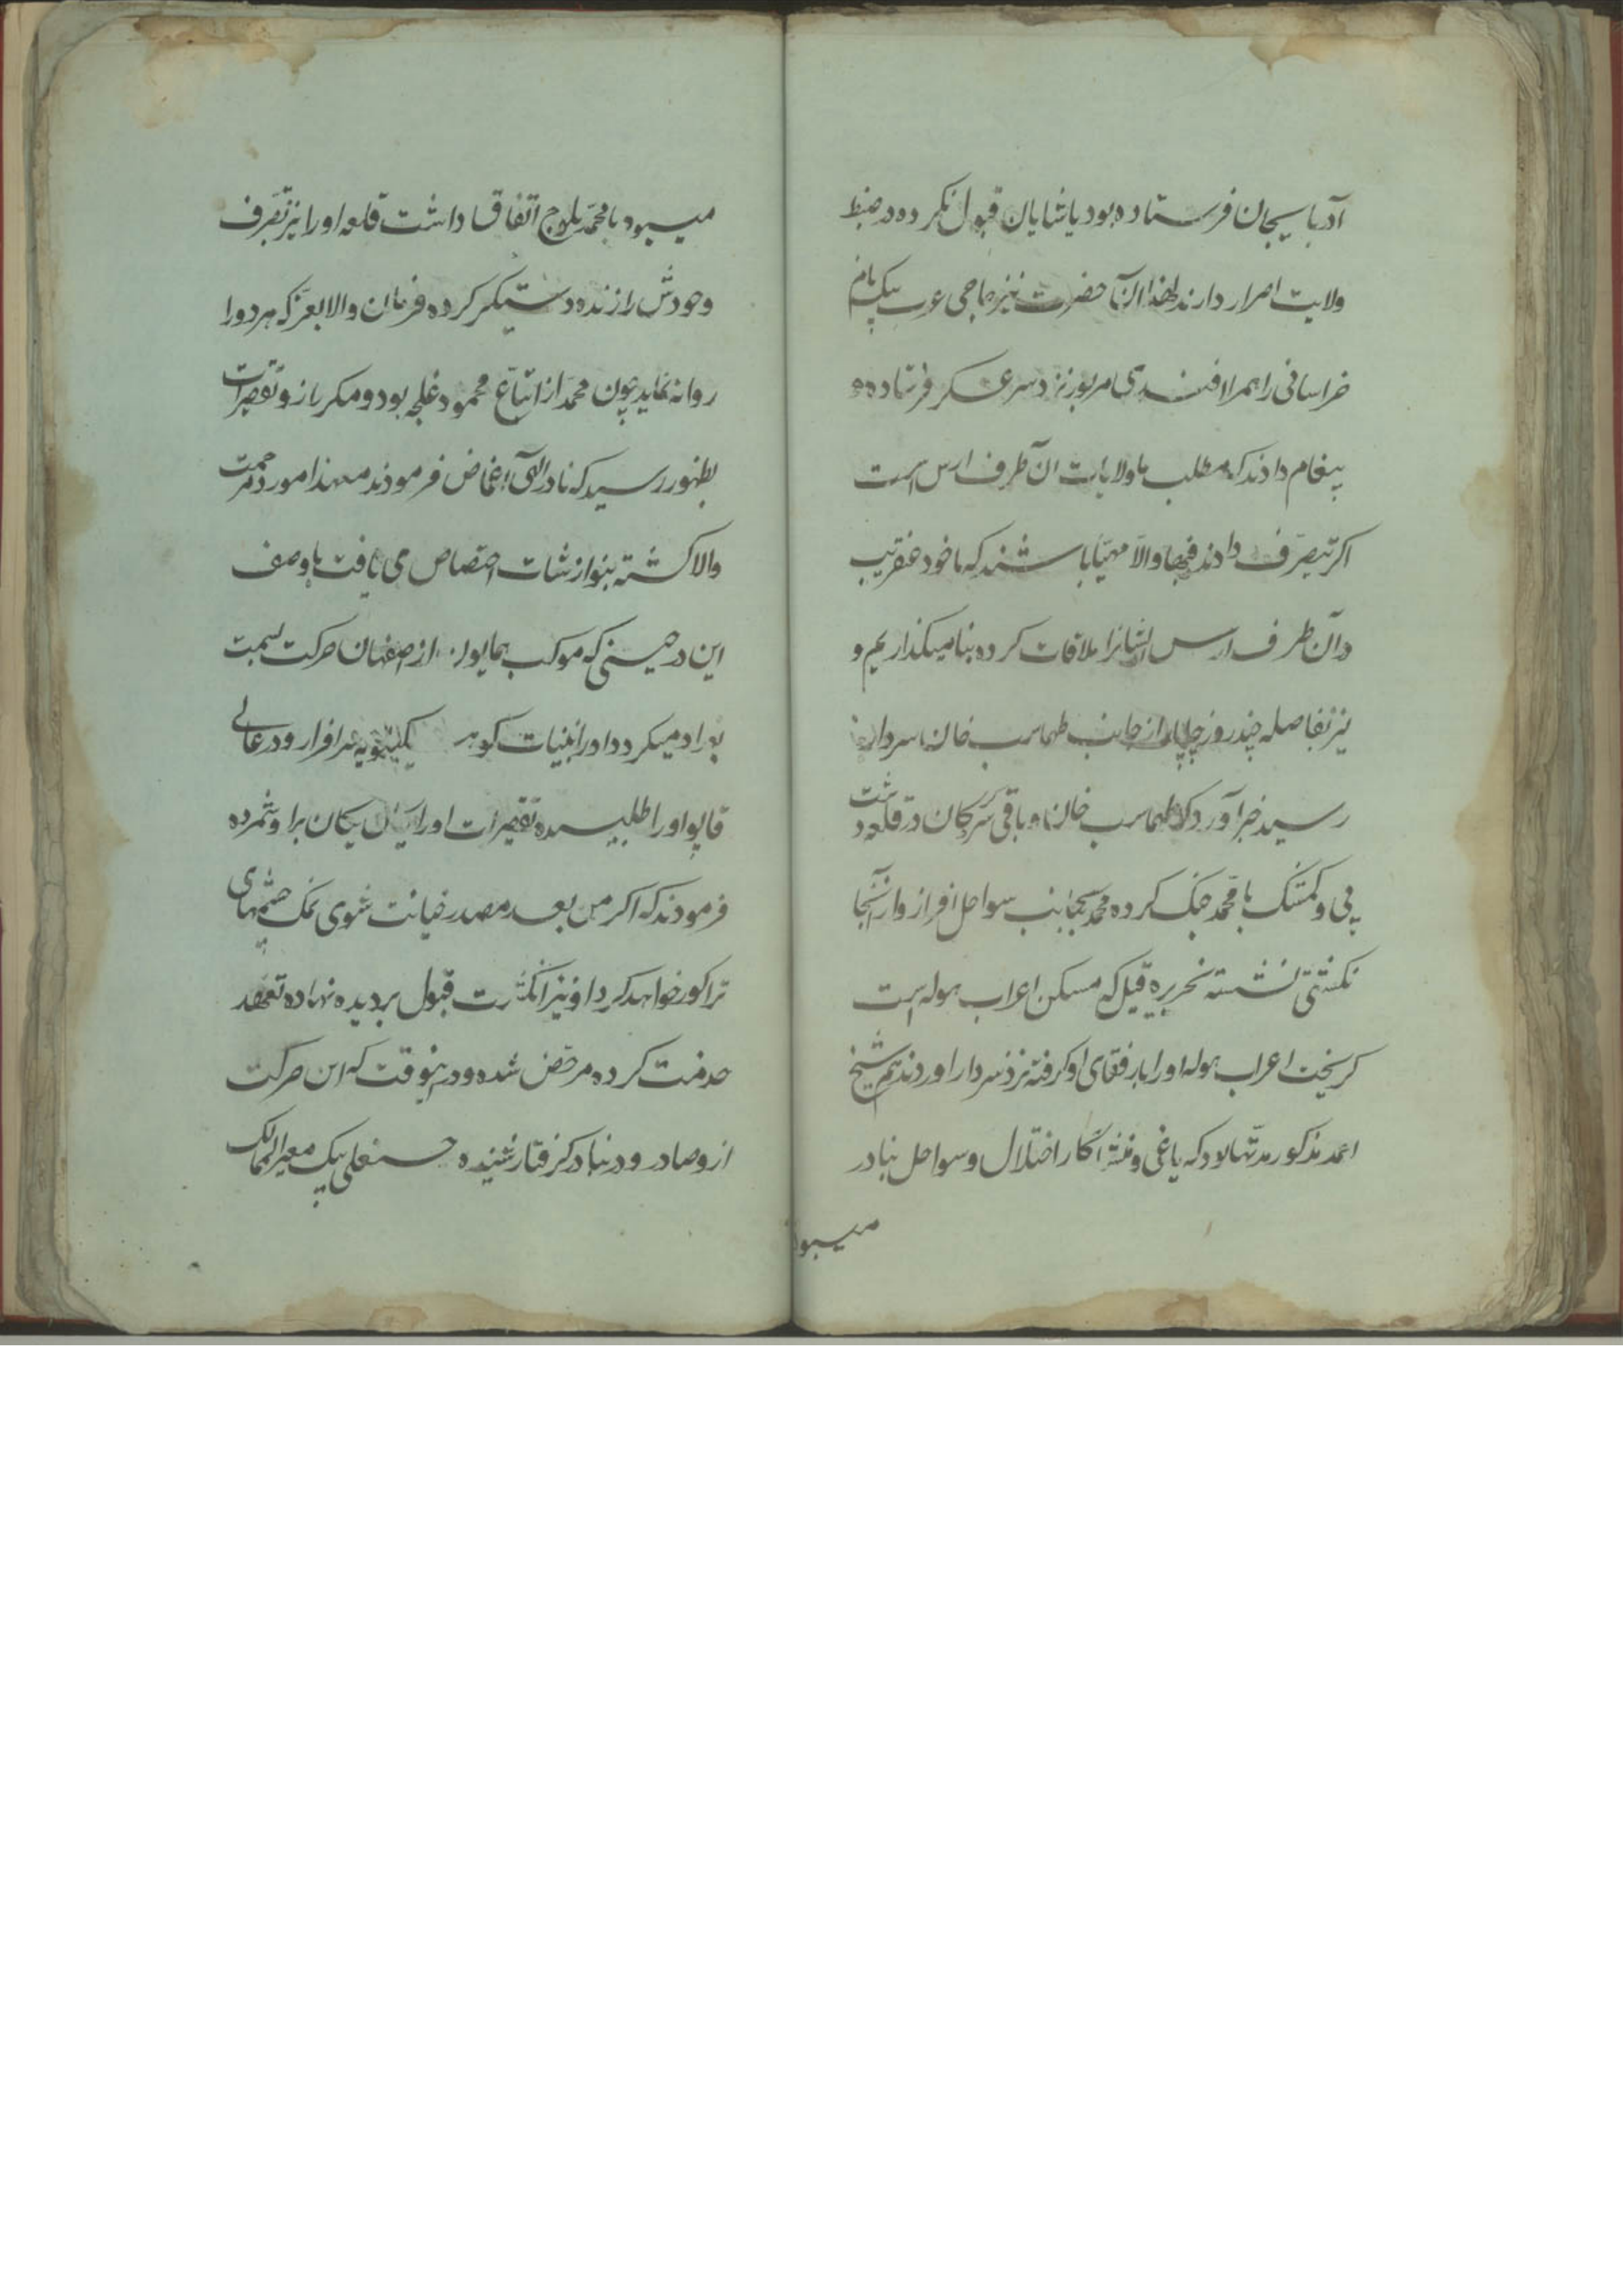 آدربایجان فرستاده بود پاشایان قبول نکرده در ضبط
ولایت اصرار دارند لهذا آن حضرت نیز حاجی عرب بیک نام
خراسانی را همراه افندی مزبور نزد سرعسکر فرستاده و
پیغام دادند که مطلب ما ولایات آن طرف ارس است
اکر بتصرف دادند فبها والا مهیا باشند که ما خود عنقریب
در آن طرف ارس ایشانرا ملاقات کرده بنا میکذاریم و
نیز بفاصله چند روز چاپار از جانب طهماسب خان سردار
رسید خبر آورد که طهماسب خان و باقی سرکردکان در قلعه دشت
پی و کمشک با محمد جنک کرده محمد بجانب سواحل افراز و از آنجا
بکشتی نشسته بجزیره قیل که مسکن اعراب هوله است
کریخت اعراب هوله او را با رفقای او کرفته نزد سردار آوردند هم شیخ
احمد مذکور مدتها بود که یاغی و منشأ اختلال و سواحل بنادر
میبود
میبود با محمد بلوچ اتفاق داشت قلعه او را نیز تصرف
و خودش را زنده دستیکر کرده فرمان والا بعز که هر دو را
روانه نماید چون محمد از اتباع محمود غلجه بود و مکرر ازو تقصیرات
بظهور رسید که نادر الهی اغماض فرمودند معهذا مورد مرحمت
والا کشته بنوازشات اختصاص می یافت با وصف
این در حینی که موکب همایون از اصفهان حرکت بسمت
بغداد میکرد او را بنیابت کوه کیلویه سرافراز و در عالی
قاپو او را طلبیده تقصیرات او را یکان یکان برو شمرده
فرمودند که اکر من بعد مصدر خیانت شوی نمک چشمهای
ترا کور خواهد کرد او نیز انکشت قبول بر دیده نهاده تعهد
خدمت کرده مرخص شده و در این وقت که این حرکت
ازو صادر و در بنادر کرفتار شده حسنعلی بیک معیر الممالک